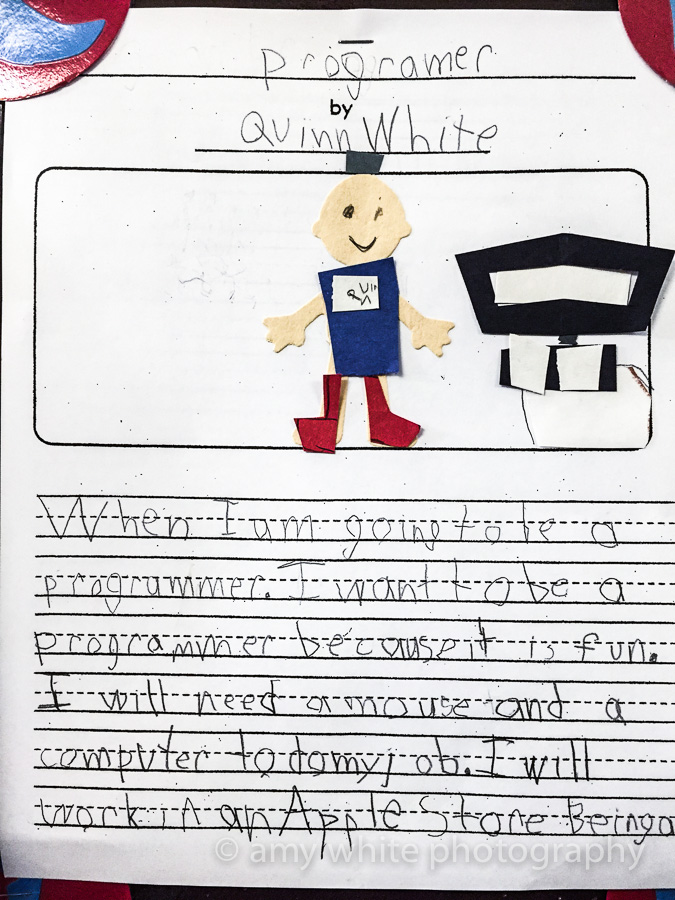 programer
by
Quinn White
Quinn
When I am going to be a
programmer. I want to be a
programmer because it is fun.
I will need a mouse and a
computer to do my job. I will
work in an Apple Store Being a
© amy white photography